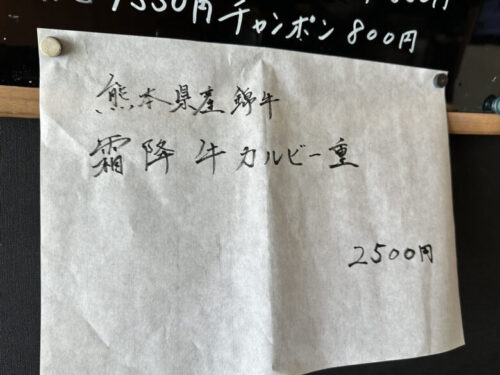 1350円 チャンポン 800円
熊本県産錦牛
霜降牛カルビー重
2500円